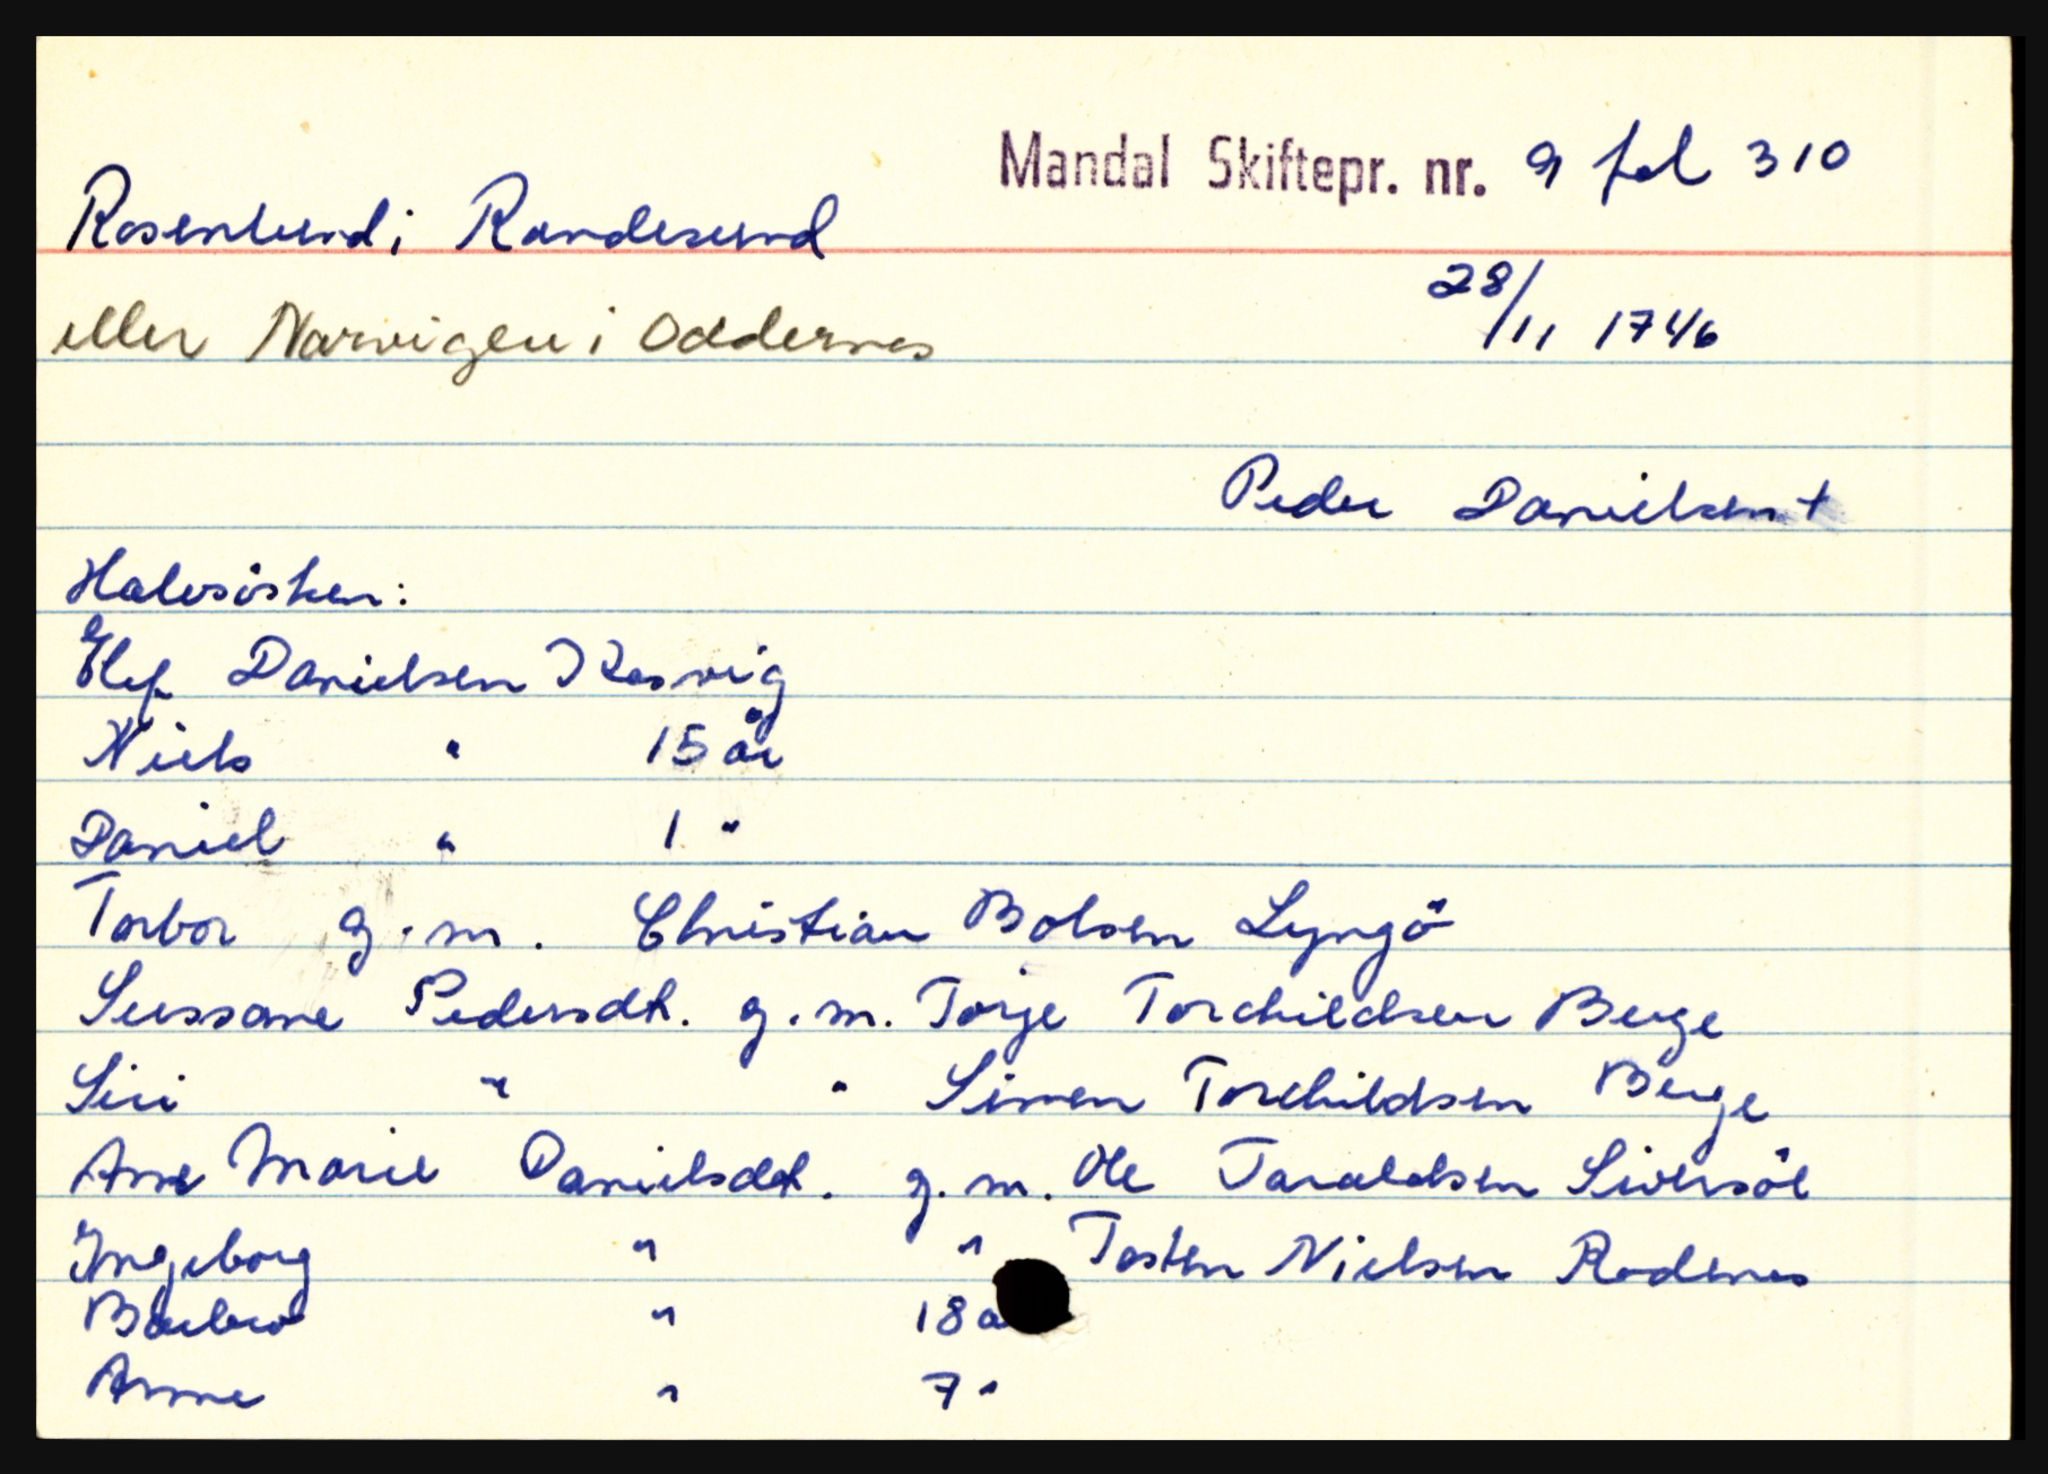 Mandal Skiftepr. nr. 9 fol 310
Rosenlund i Randesund
28/11 1746
eller Narvigen i Oddernes
Peder Danielsen †
Halvsösken:
Danielsen Kosvig
Niels " 15 år
Daniel " 1 "
Torbor g.m. Christian Bolsen Lyngö
Sussane Pedersdt. g.m. Torje Torchildsen Berge
Siri " " Simen Torchildsen Berge
Ane Marie Danielsdt. g.m. Ole Taraldsen Siversöl
Ingeborg " " Tosten Nielsen Rodenes
Barbro " 18 å
Anne " 7 "